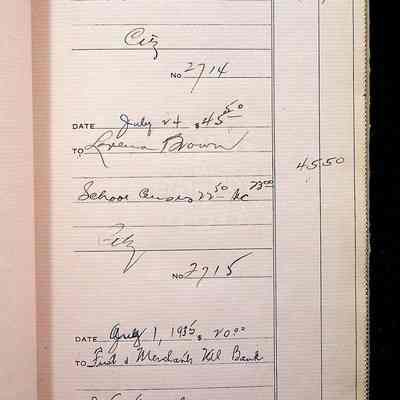 City
No 2714
DATE July 24 $ 45 50
TO Lorena Brown
45 50
School Census 22 50 23 00
City
No 2715
DATE July 1, 1935 $ 20 00
TO First & Merchants Nil Bank